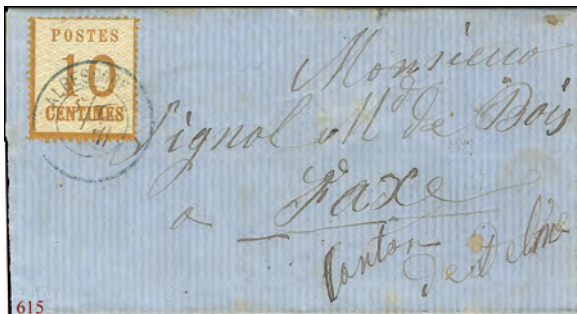 POSTES
10
CENTIMES
ALBESDORF
Monsieur
Vignol Md de Bois
a Faxe
Canton
de Delme
615